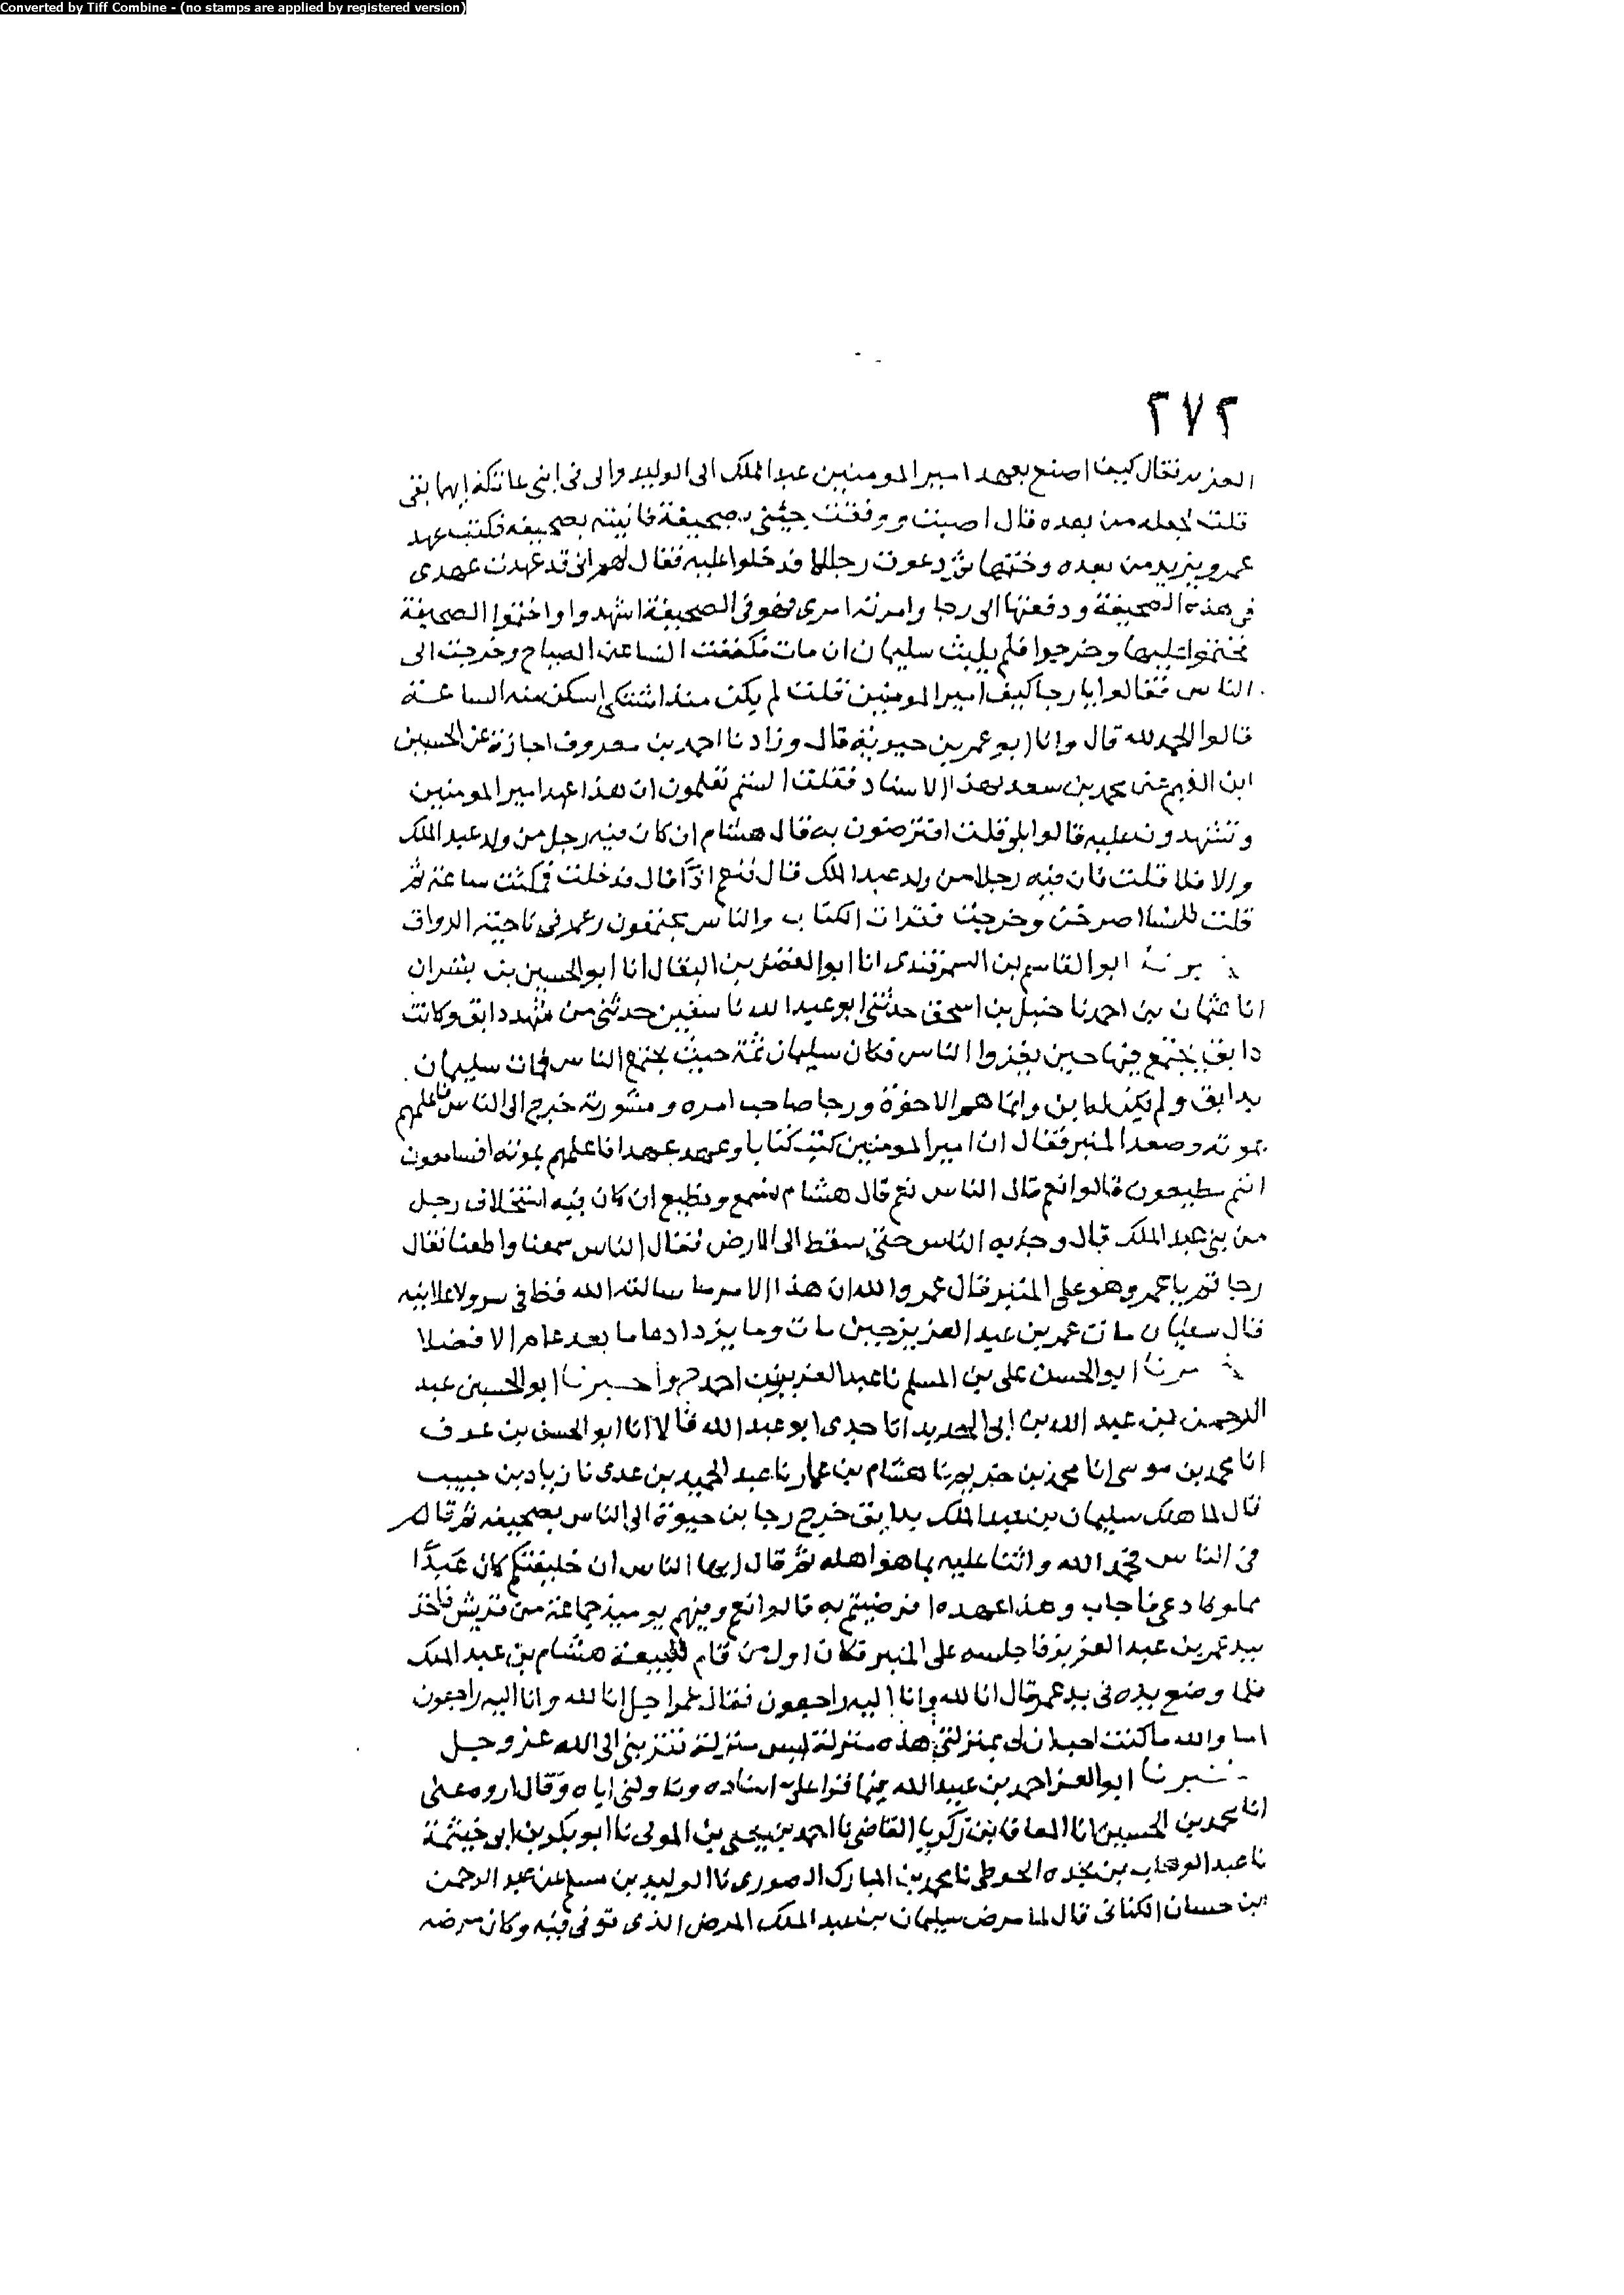 Converted by Tiff Combine - (no stamps are applied by registered version)
٢٧٢
العزيز فقال كيف اصنع بعهد امير المومنين عبد الملك الى الوليد والى فى ابنى عاتكة ايهما بقى
قلت تجعله من بعده قال اصبت ووفقت جيئنى بصحيفة فاتيته بصحيفه فكتب عهد
عمر ويزيد من بعده وختمها ثم دعوت رجالا فدخلوا عليه فقال لهم انى قد عهدت عهدى
فى هذه الصحيفة ودفعتها الى رجا وامرته امرى وهو فى الصحيفة اشهدوا واختموا الصحيفة
فختموا عليها وخرجوا فلم يلبث سليمان ان مات فكففت النسا عن الصياح وخرجت الى
الناس فقالوا يا رجا كيف امير المومنين قلت لم يكن منذ اشتكى اسكن منه الساعة
قالوا الحمد لله قال وانا ابو عمر بن حيويه قال وزادنا احمد بن معروف اجازة عن الحسين
ابن الفهم عن محمد بن سعد بهذا الاسناد فقلت الستم تعلمون ان هذا عهد امير المومنين
وتشهدون عليه قالوا بلى قلت افترضون به قال هشام ان كان فيه رجل من ولد عبد الملك
والا فلا قلت فان فيه رجلا من ولد عبد الملك قال فنعم اذًا قال فدخلت فمكثت ساعة ثم
قلت للنسا اصرخن وخرجت فقرات الكتاب والناس مجتمعون وعمر فى ناحية الرواق
ابو القاسم بن السمرقندى انا ابو الفضل بن البقال انا ابو الحسين بن بشران
انا عثمان بن احمد نا حنبل بن اسحق حدثنى ابو عبد الله نا سفين حدثنى من شهد دابق وكانت
دابق يجتمع فيها حين يغزوا الناس فكان سليمان ثمة حيث يجتمع الناس فمات سليمان
بدابق ولم يكن له ابن وانما هم الاخوة ورجا صاحب امره ومشورته خرج الى الناس فاعلمهم
بموته وصعد المنبر فقال ان امير المومنين كتب كتابا وعهد عهدا فاعلمهم بموته افسامعون
انتم مطيعون قالوا نعم قال الناس نعم قال هشام نسمع ونطيع ان كان فيه استخلاف رجل
من بنى عبد الملك قال وجذبه الناس حتى سقط الى الارض فقال الناس سمعنا واطعنا فقال
رجا قم يا عمر وهو على المنبر فقال عمر والله ان هذا الامر ما سالته الله قط فى سر ولا علانيه
قال سفيان مات عمر بن عبد العزيز حين مات وما يزداد عاما بعد عام الا فضلا
ابو الحسن على بن المسلم نا عبد العزيز بن احمد ح واخبرنا ابو الحسين عبد
الرحمن بن عبد الله بن ابى الحديد انا جدى ابو عبد الله قالا انا ابو الحسن بن عوف
انا محمد بن موسى انا محمد بن خريم نا هشام بن عمار نا عبد الحميد بن عدى نا زياد بن حبيب
قال لما هلك سليمان بن عبد الملك بدابق خرج رجا بن حيوة الى الناس بصحيفه ثم قام
فى الناس فحمد الله واثنا عليه بما هو اهله ثم قال ايها الناس ان خليفتكم كان عَبدًا
مملوكا دعى فاجاب وهذا عهده افرضيتم به قالوا نعم وفيهم يوميذ جماعة من قريش فاخذ
بيد عمر بن عبد العزيز فاجلسه على المنبر فكان اول من قام للبيعة هشام بن عبد الملك
فلما وضع يده فى يد عمر قال انا لله وانا اليه راجعون فقال عمر اجل انا لله وانا اليه راجعون
اما والله ما كنت احب ان لك بمنزلتى هذه منزلة ليس منزلة تقربنى الى الله عز وجل
ابو العز احمد بن عبيد الله فيما قرا على اسناده وناولنى اياه وقال اروه عنى
انا محمد بن الحسين انا المعافا بن زكريا القاضى نا احمد بن يحيى بن المولى نا ابو بكر بن ابى خيثمة
نا عبد الوهاب بن نجده الحوطى نا محمد بن المبارك الصورى نا الوليد بن مسلم عن عبد الرحمن
بن حسان الكنانى قال لما مرض سليمان بن عبد الملك المرض الذى توفى فيه وكان مرضه